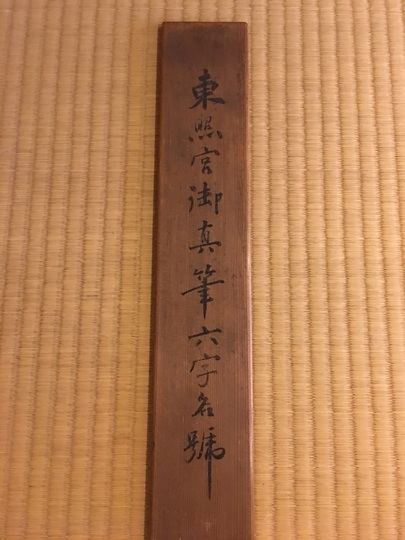 東照宮御真筆六字名號